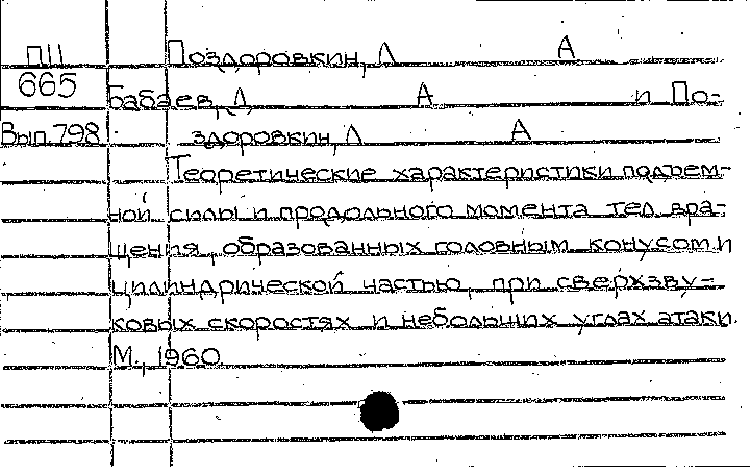 П11 Поздоровкин, Л А
665
Бабаев, Д А и По-
Вып.798 здоровкин, Л А
Теоретические характеристики подъем-
ной силы и продольного момента тел вра-
щения, образованных головным конусом и
цилиндрической частью, при сверхзву-
ковых скоростях и небольших углах атаки.
М., 1960.